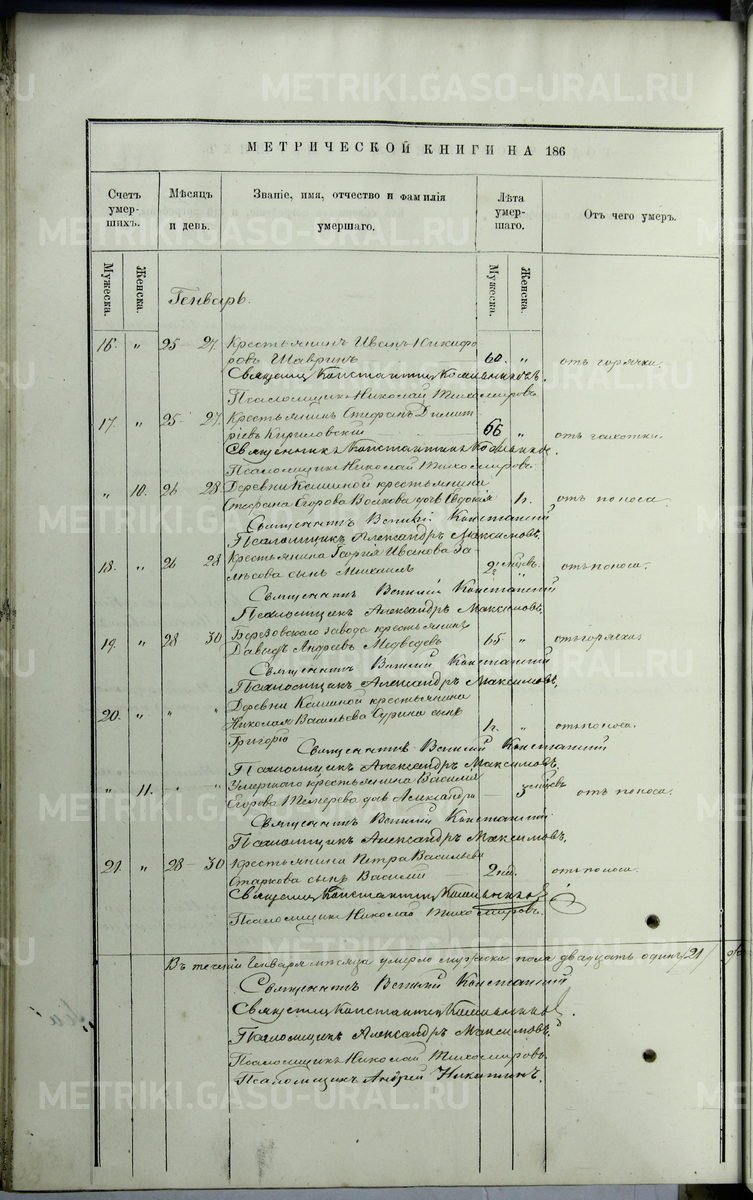 МЕТРИЧЕСКОЙ КНИГИ НА 186
Счетъ умер- шихъ.
Мѣсяцъ и день.
Званіе, имя, отчество и фамилія умершаго.
Лѣта умер- шаго.
Отъ чего умеръ.
Мужеска. Женска. Мужеска. Женска.
Генварь.
16. „ 25 27 Крестьянинъ Иванъ Никифо
ровъ Шавринъ 60. „ отъ горячки.
Священникъ Константинъ
Псаломщикъ Николай Тихомировъ
17. „ 25 27 Крестьянинъ Стефанъ Димит
ріевъ Кириловскій 66 „ отъ чахотки.
Священникъ Константинъ
Псаломщикъ Николай Тихомировъ.
„ 10. 26 28 Деревни крестьянина
Стефана Егорова Волкова дочь Евдокія отъ поноса.
Священникъ Константинъ
Псаломщикъ Александръ Максимовъ.
18. „ 26 28 Крестьянина Георгія Иванова
сынъ Михаилъ 2 отъ поноса.
Священникъ
Псаломщикъ Александръ Максимовъ.
19. „ 28 30 Березовскаго завода крестьянинъ
Давидъ Андреевъ Медведевъ 65 „ отъ горячки
Священникъ
Псаломщикъ Александръ Максимовъ.
20. „ „ „ Деревни крестьянина
Николая Васильева Сурина сынъ
Григорій „ отъ поноса.
Священникъ
Псаломщикъ Александръ Максимовъ.
„ 11. „ „ Умершаго крестьянина Василія
Егорова дочь Александра 3 отъ поноса.
Священникъ
Псаломщикъ Александръ Максимовъ.
21. „ 28 — 30 Крестьянина Петра Васильева
Старкова сынъ Василій 2 нед. отъ поноса.
Священникъ Константинъ
Псаломщикъ Николай Тихомировъ.
Въ теченіи Генваря мѣсяца умерло мужеска пола двадцать одинъ /21/
Священникъ
Священникъ Константинъ
Псаломщикъ Александръ Максимовъ.
Псаломщикъ Николай Тихомировъ.
Псаломщикъ Андрей Никитинъ.
METRIKI.GASO-URAL.RU
METRIKI.GASO-URAL.RU
METRIKI.GASO-URAL.RU
METRIKI.GASO-URAL.RU
METRIKI.GASO-URAL.RU
METRIKI.GASO-URAL.RU
METRIKI.GASO-URAL.RU
METRIKI.GASO-URAL.RU